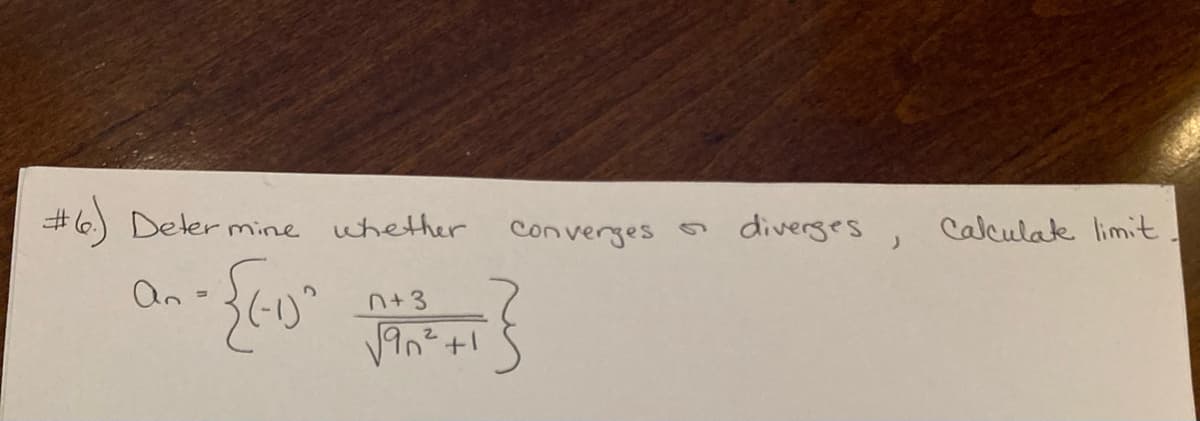 #6.) Determine whether converges or diverges, Calculate limit.
an = {(-1)^n (n+3)/√(9n²+1)}